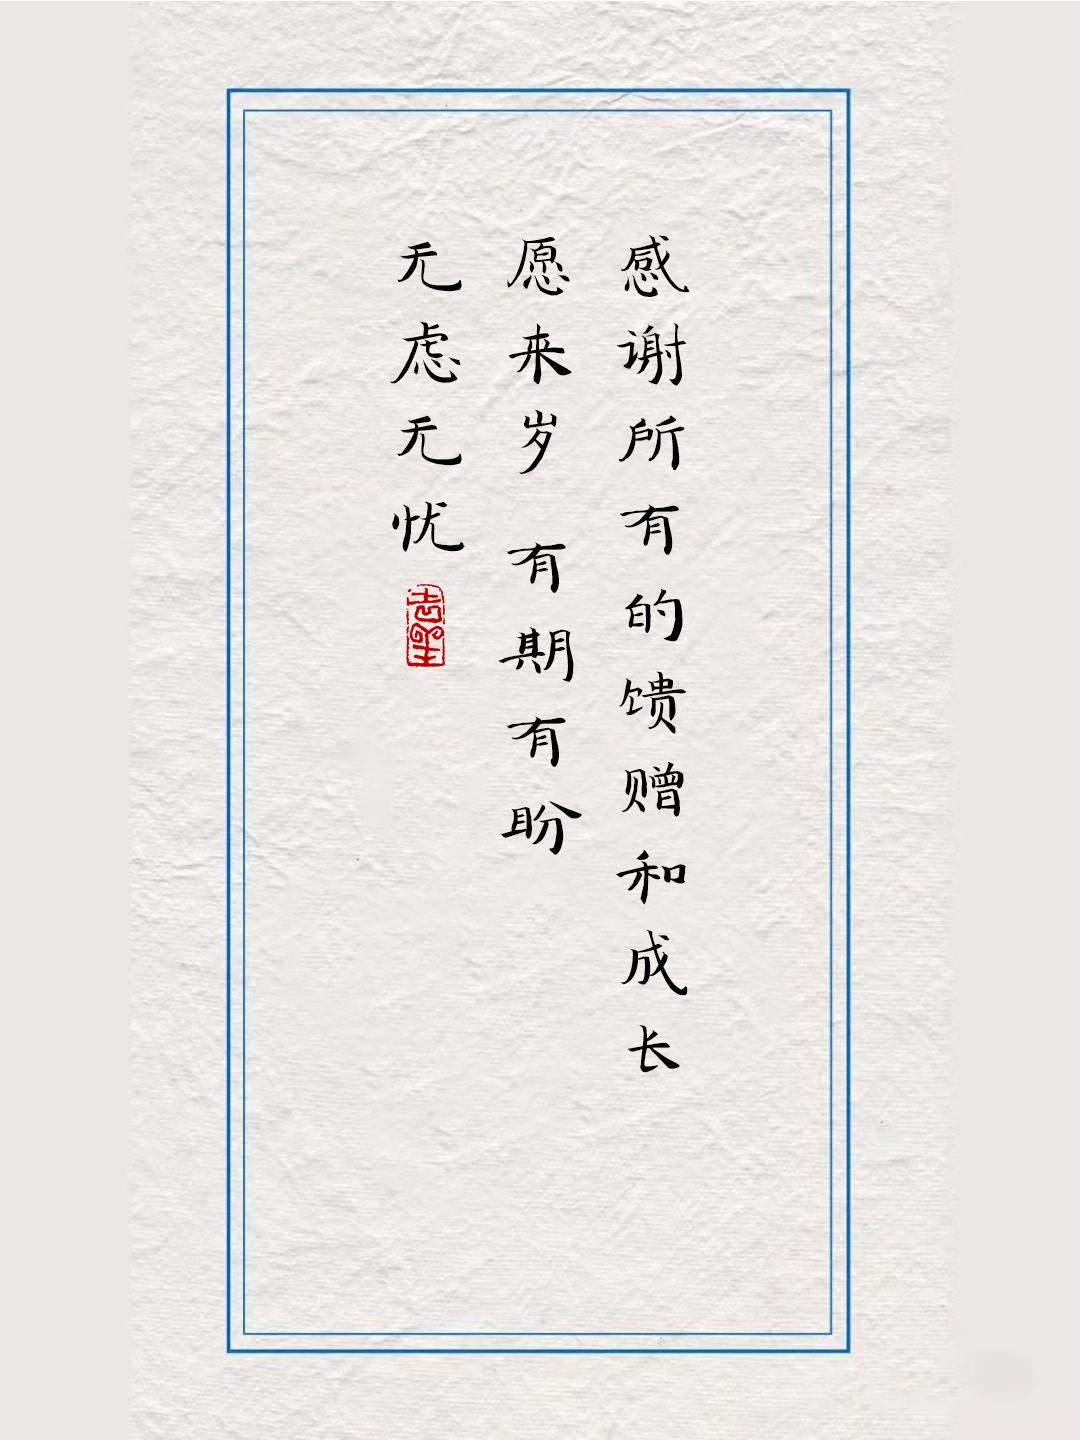 感谢所有的馈赠和成长
愿来岁 有期有盼
无虑无忧